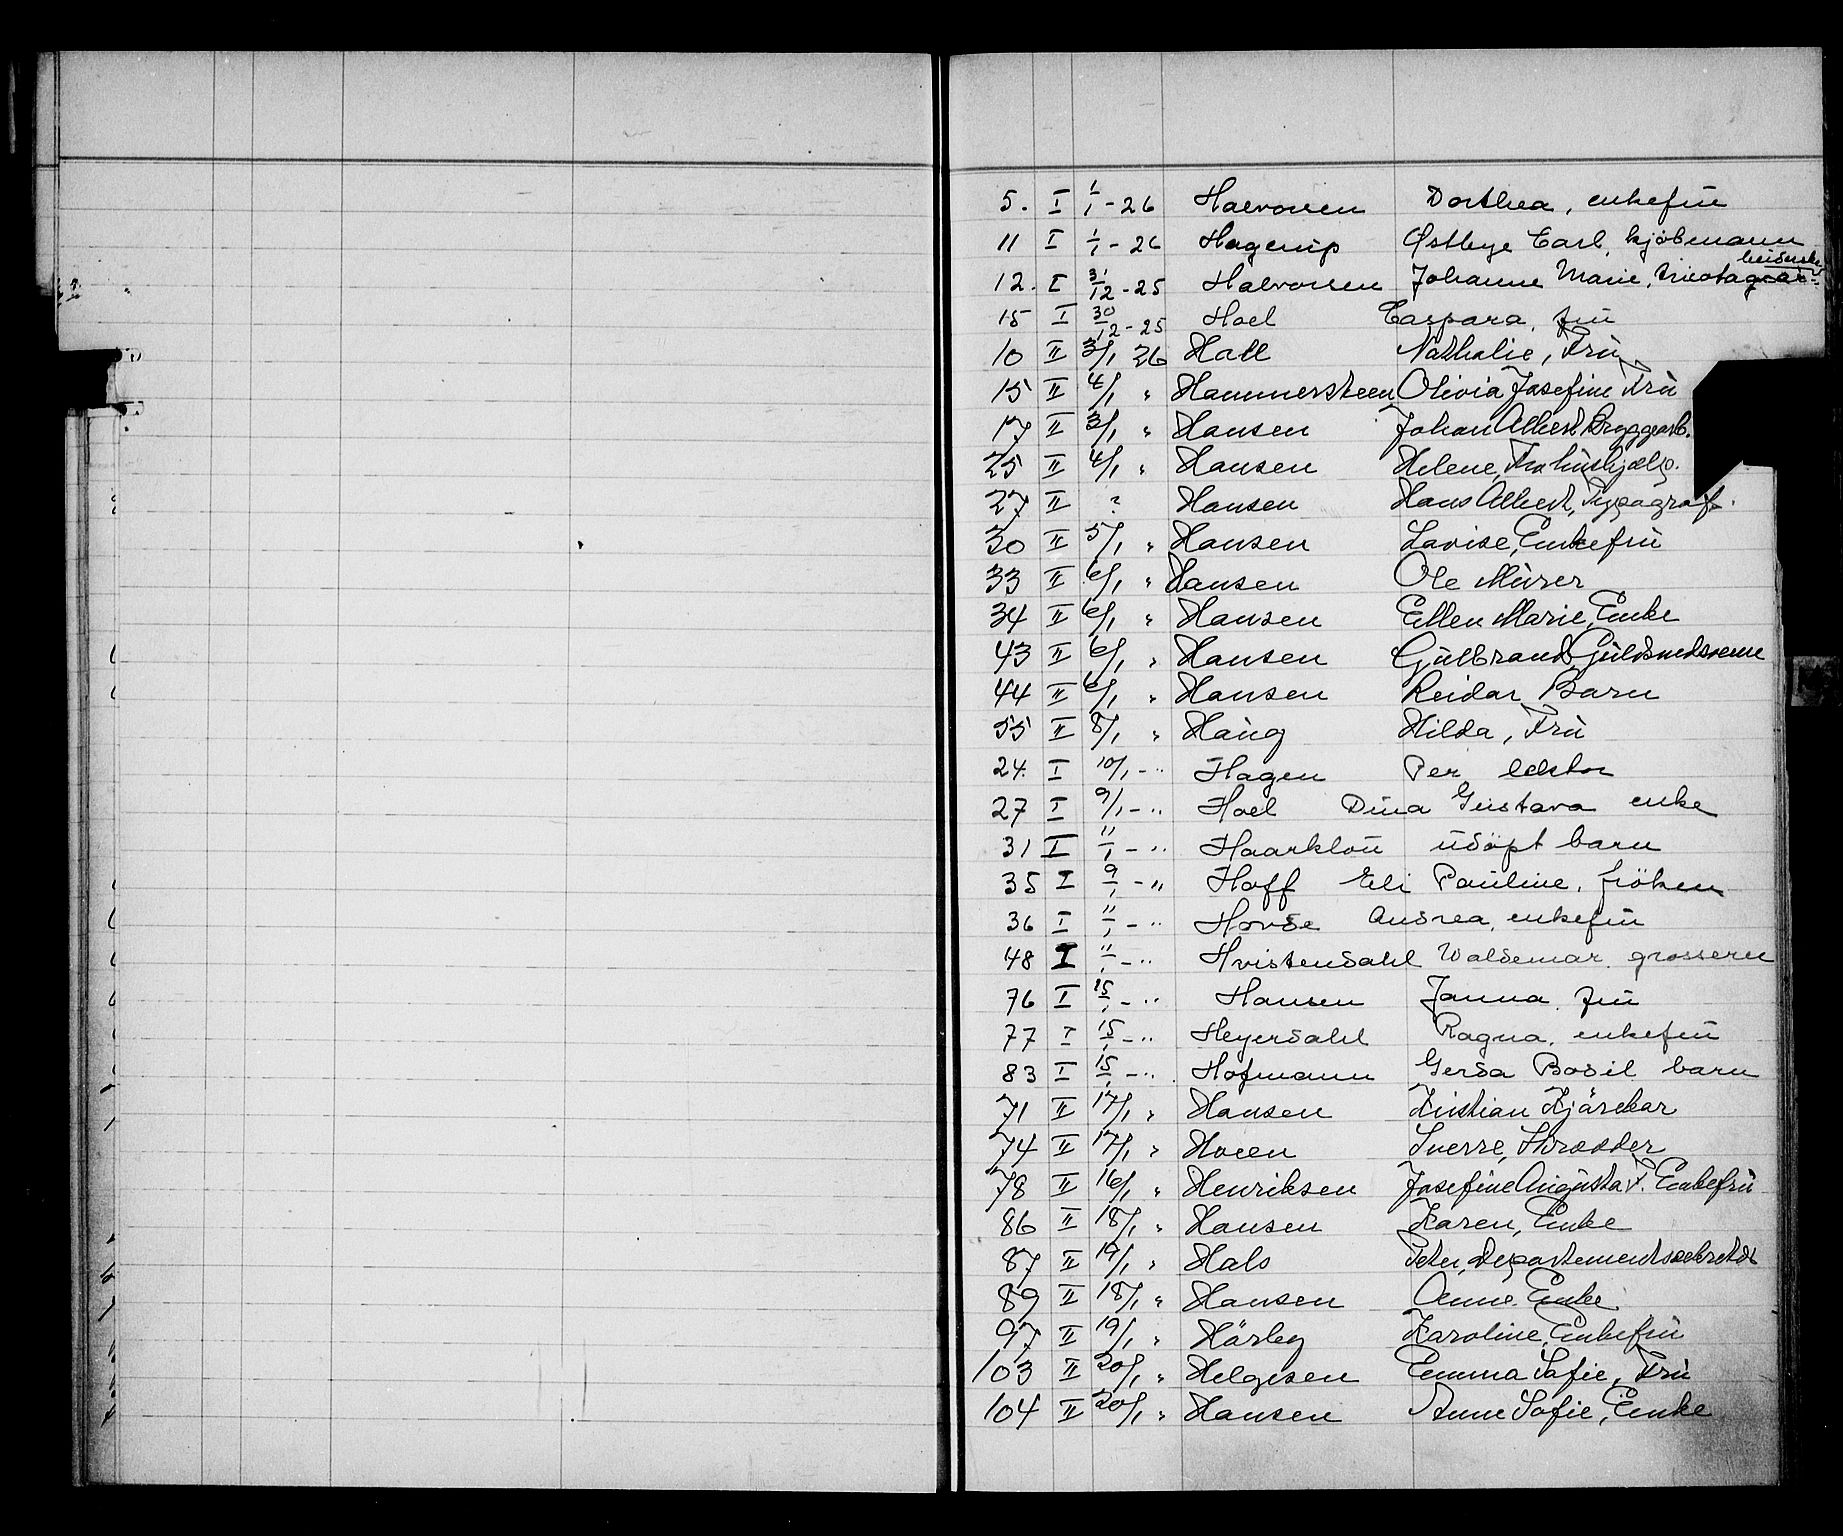 5. I 1/1 - 26 Halvorsen Dorthea, enkefrü
11 I 1/1 - 26 Hagerup Østbye Carl kjöbmann
12. I 31/12 - 25 Halvorsen Johanne Marie, tricotage ar-
15 I 30/12 - 25 Hoel Caspara, frü
10 II 3/1 26 Hall Nathalie, Frü
15 II 4/1 " Hammersteen Olivia Josefine Frü
17 II 3/1 " Hansen Johan Albert Bryggearb.
25 II 4/1 " Hansen Helene, Frk hüshjælp.
27 II ? Hansen Hans Albert, Typograf.
30 II 5/1 " Hansen Lovise, Enkefrü
33 II 6/1 " Hansen Ole Mürer
34 II 6/1 " Hansen Ellen Marie, Enke
43 II 6/1 " Hansen Gülbrand Güldsmedsvenn
44 II 6/1 " Hansen Reidar Barn
55 II 8/1 " Haüg Hilda, Frü
24. I 10/1 - " Hagen Per lektor
27 I 9/1 - " Hoel Dina Güstava enke
31 I 11/1 - " Haarkloü üdöpt barn
35 I 9/1 - " Hoff Eli Paüline, fröken
36 I 11/1 - " Hovde Andrea, enkefrü
48 I 11/1 - " Hvistendahl Waldemar grosserer
76 I 15/1 - " Hansen Janna frü
77 I 15/1 - " Heyerdahl Ragna, enkefrü
83 I 15/1 - " Hofmann Gerda Bodil barn
71 II 17/1 " Hansen Kristian Kjörekar
74 II 17/1 " Hoen Sverre, Skrædder
78 II 16/1 " Henriksen Josefine Aügüsta F. Enkefrü
86 II 18/1 " Hansen Karen, Enke
87 II 19/1 " Hals Peter, Departementssekretær
89 II 18/1 " Hansen Anne Enke
97 II 19/1 " Hörby Karoline, Enkefrü
103 II 20/1 " Helgesen Emma Sofie, Frü
104 II 20/1 " Hansen Anne Sofie, Enke